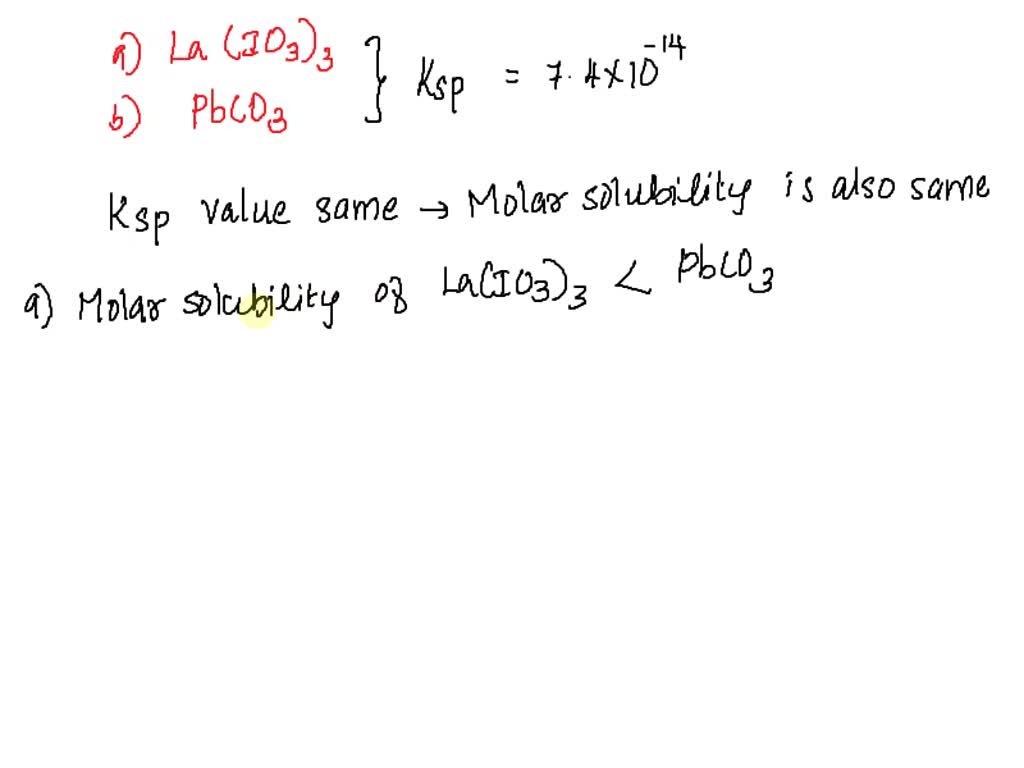 a) La (IO3)3 } Ksp = 7.4×10^-14
b) PbCO3
Ksp value same → Molar solubility is also same
a) Molar solubility of La(IO3)3 < PbCO3